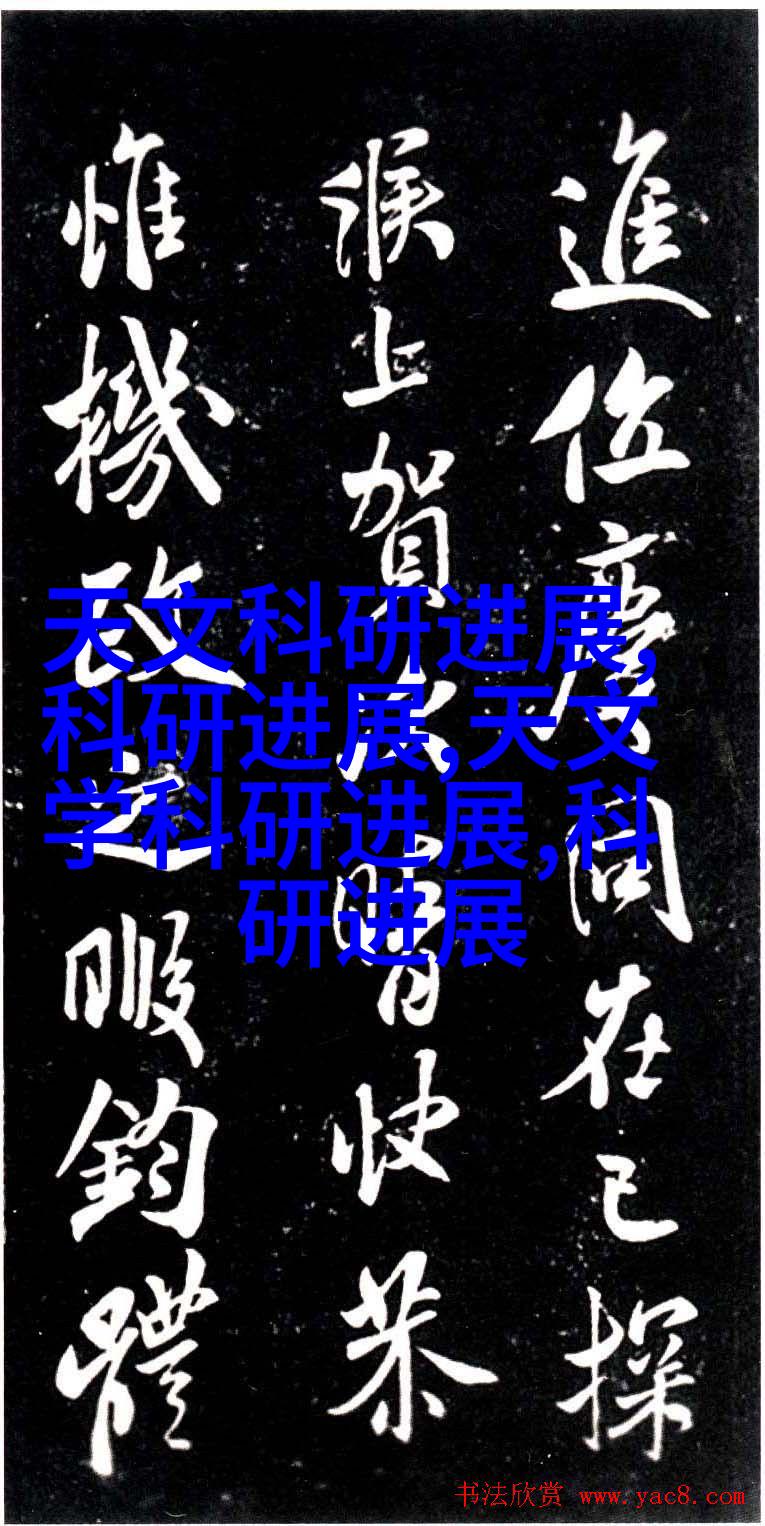 進位慶同在己探
上賀晴快恭
惟機政之暇鈞體
天文科研进展,
科研进展,天文
学科研进展,科
研进展
书法欣赏 www.yac8.com